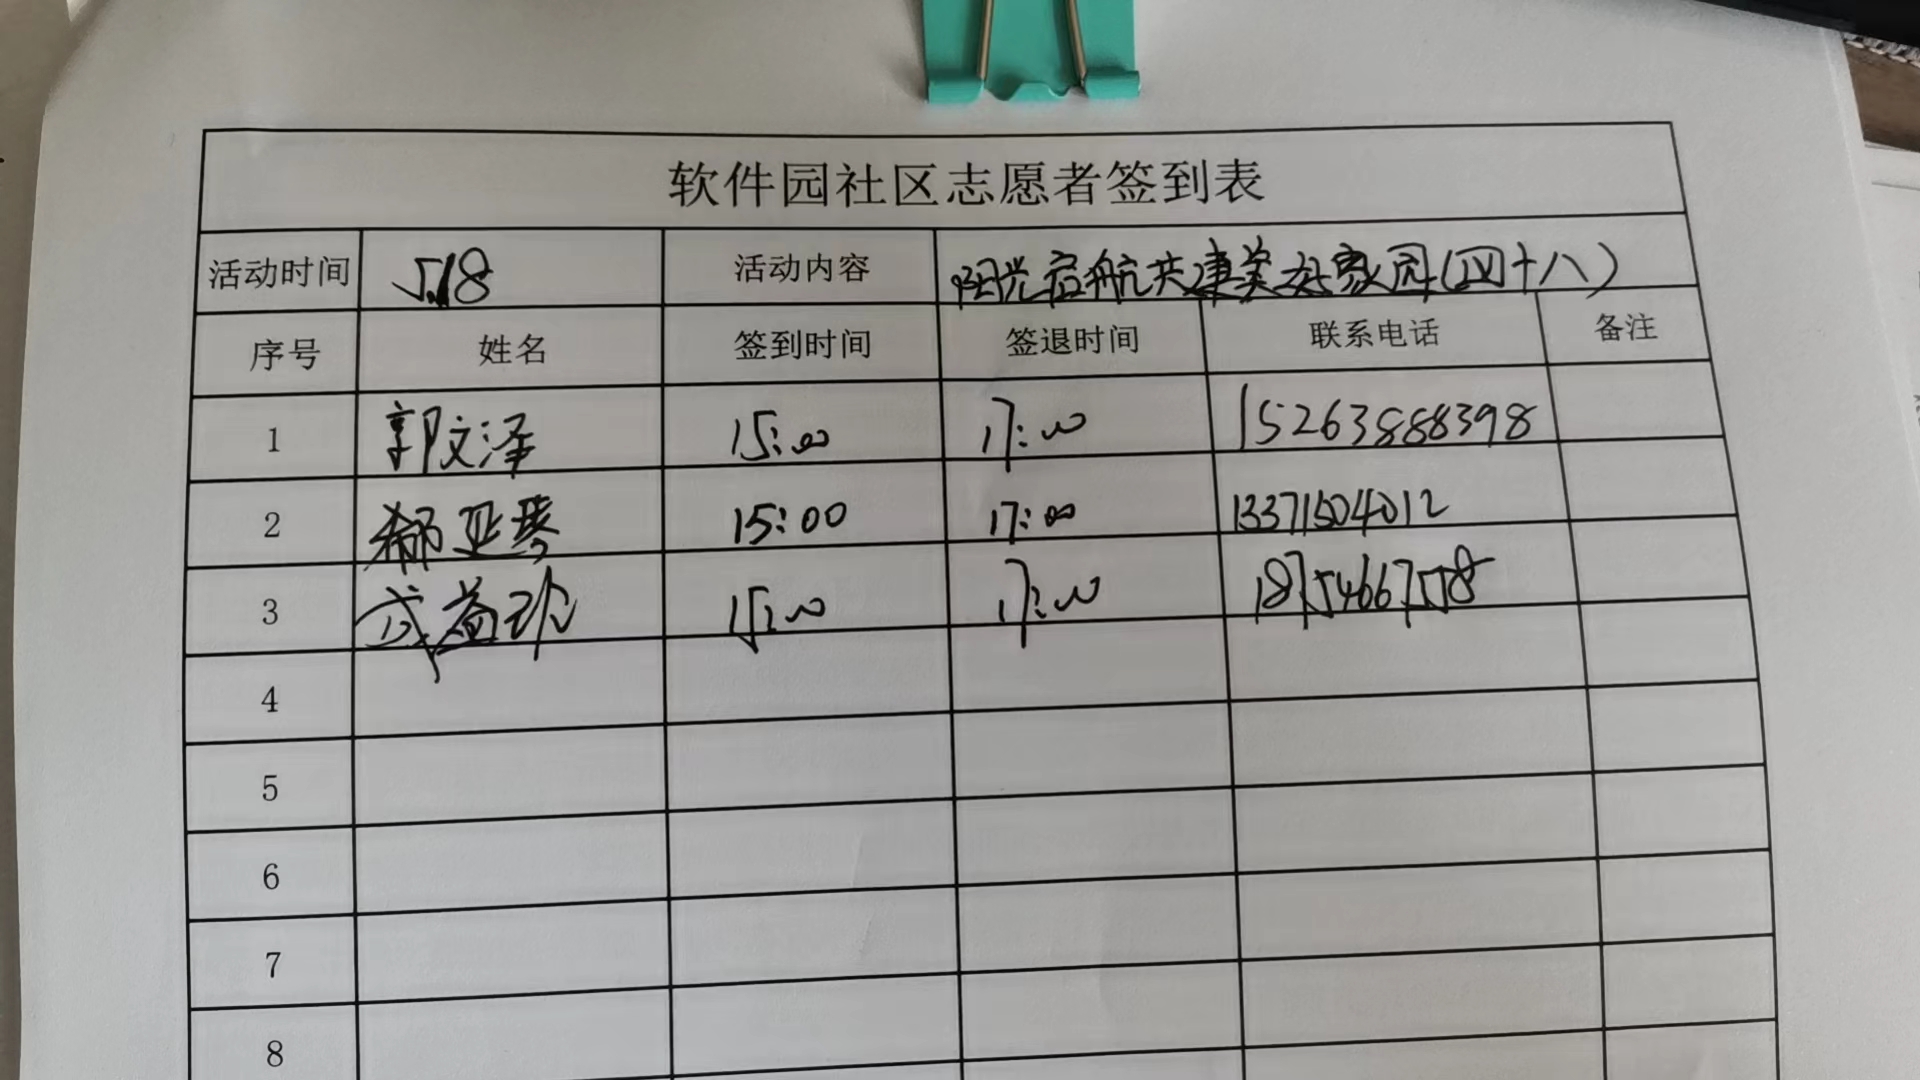 软件园社区志愿者签到表
活动时间 5.18 活动内容 阳光启航共建美好家园(四十八)
序号 姓名 签到时间 签退时间 联系电话 备注
1 郭文泽 15:00 17:00 15263888398
2 郗亚琴 15:00 17:00 13371504012
3 益 15:00 17:00 18754667558
4
5
6
7
8